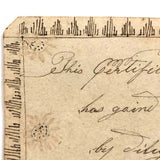 This Certif
has gaine
by